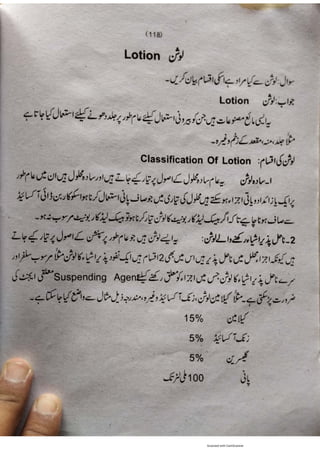 (118)
لوشن Lotion
سوال: لوشن سے کیا مراد ہے اسکی اقسام بیان کریں۔
جواب: لوشن Lotion
یہ ایسی مائع مصنوعات ہیں جن کو بیرونی استعمال کیلئے عام طور پر جلد دھونے کیلئے استعمال کیا جاتا ہے
مثلاً جلد، منہ، مقعد کے زخم وغیرہ۔
لوشن کی اقسام: Classification Of Lotion
۱۔ سادہ لوشن: یہ عام سادہ محلول کے اصول پر تیار کیے جاتے ہیں اور سادہ محلول ہیں ان میں عام طور
پر ایک یا زائد دوا یا پانی اجزاء ہو سکتے ہیں لوشن کی تیاری میں جو صاف پانی استعمال کرنا ہو اسکو کاربن ڈائی آکسائیڈ
سے صاف ہونا چاہیے تاکہ اگر لیڈ کاربونیٹ کا لوشن تیار کرنا ہو تو لیڈ کاربونیٹ مرسوب نہ ہو۔
۲۔ ناحل پذیر اشیاء رکھنے والے لوشن: یہ ایسے لوشن ہیں جو عام طور پر سسپنشن کے اصول پر تیار کیے جاتے
ہیں کیونکہ اجزاء محلل میں ناحل پذیر ہیں اس میں بھی 2 اقسام ہیں ایک نفوذ پذیر اشیاء کا لوشن مثلاً مرسوب سلفر اور
سرے ناحل پذیر اشیاء کا لوشن جس میں اجزاء کو معلق رکھنے کیلئے Suspending Agent معلقی ایجنٹ کی
ضرورت پڑ سکتی ہے۔ مثلاً کیلامین لوشن، زنک آکسائیڈ وغیرہ، مندرجہ ذیل مثال سے واضع کیا جا سکتا ہے۔
کیلامین 15%
زنک آکسائیڈ 5%
گلیسرین 5%
پانی 100 ملی لٹر تک
Scanned with CamScanner